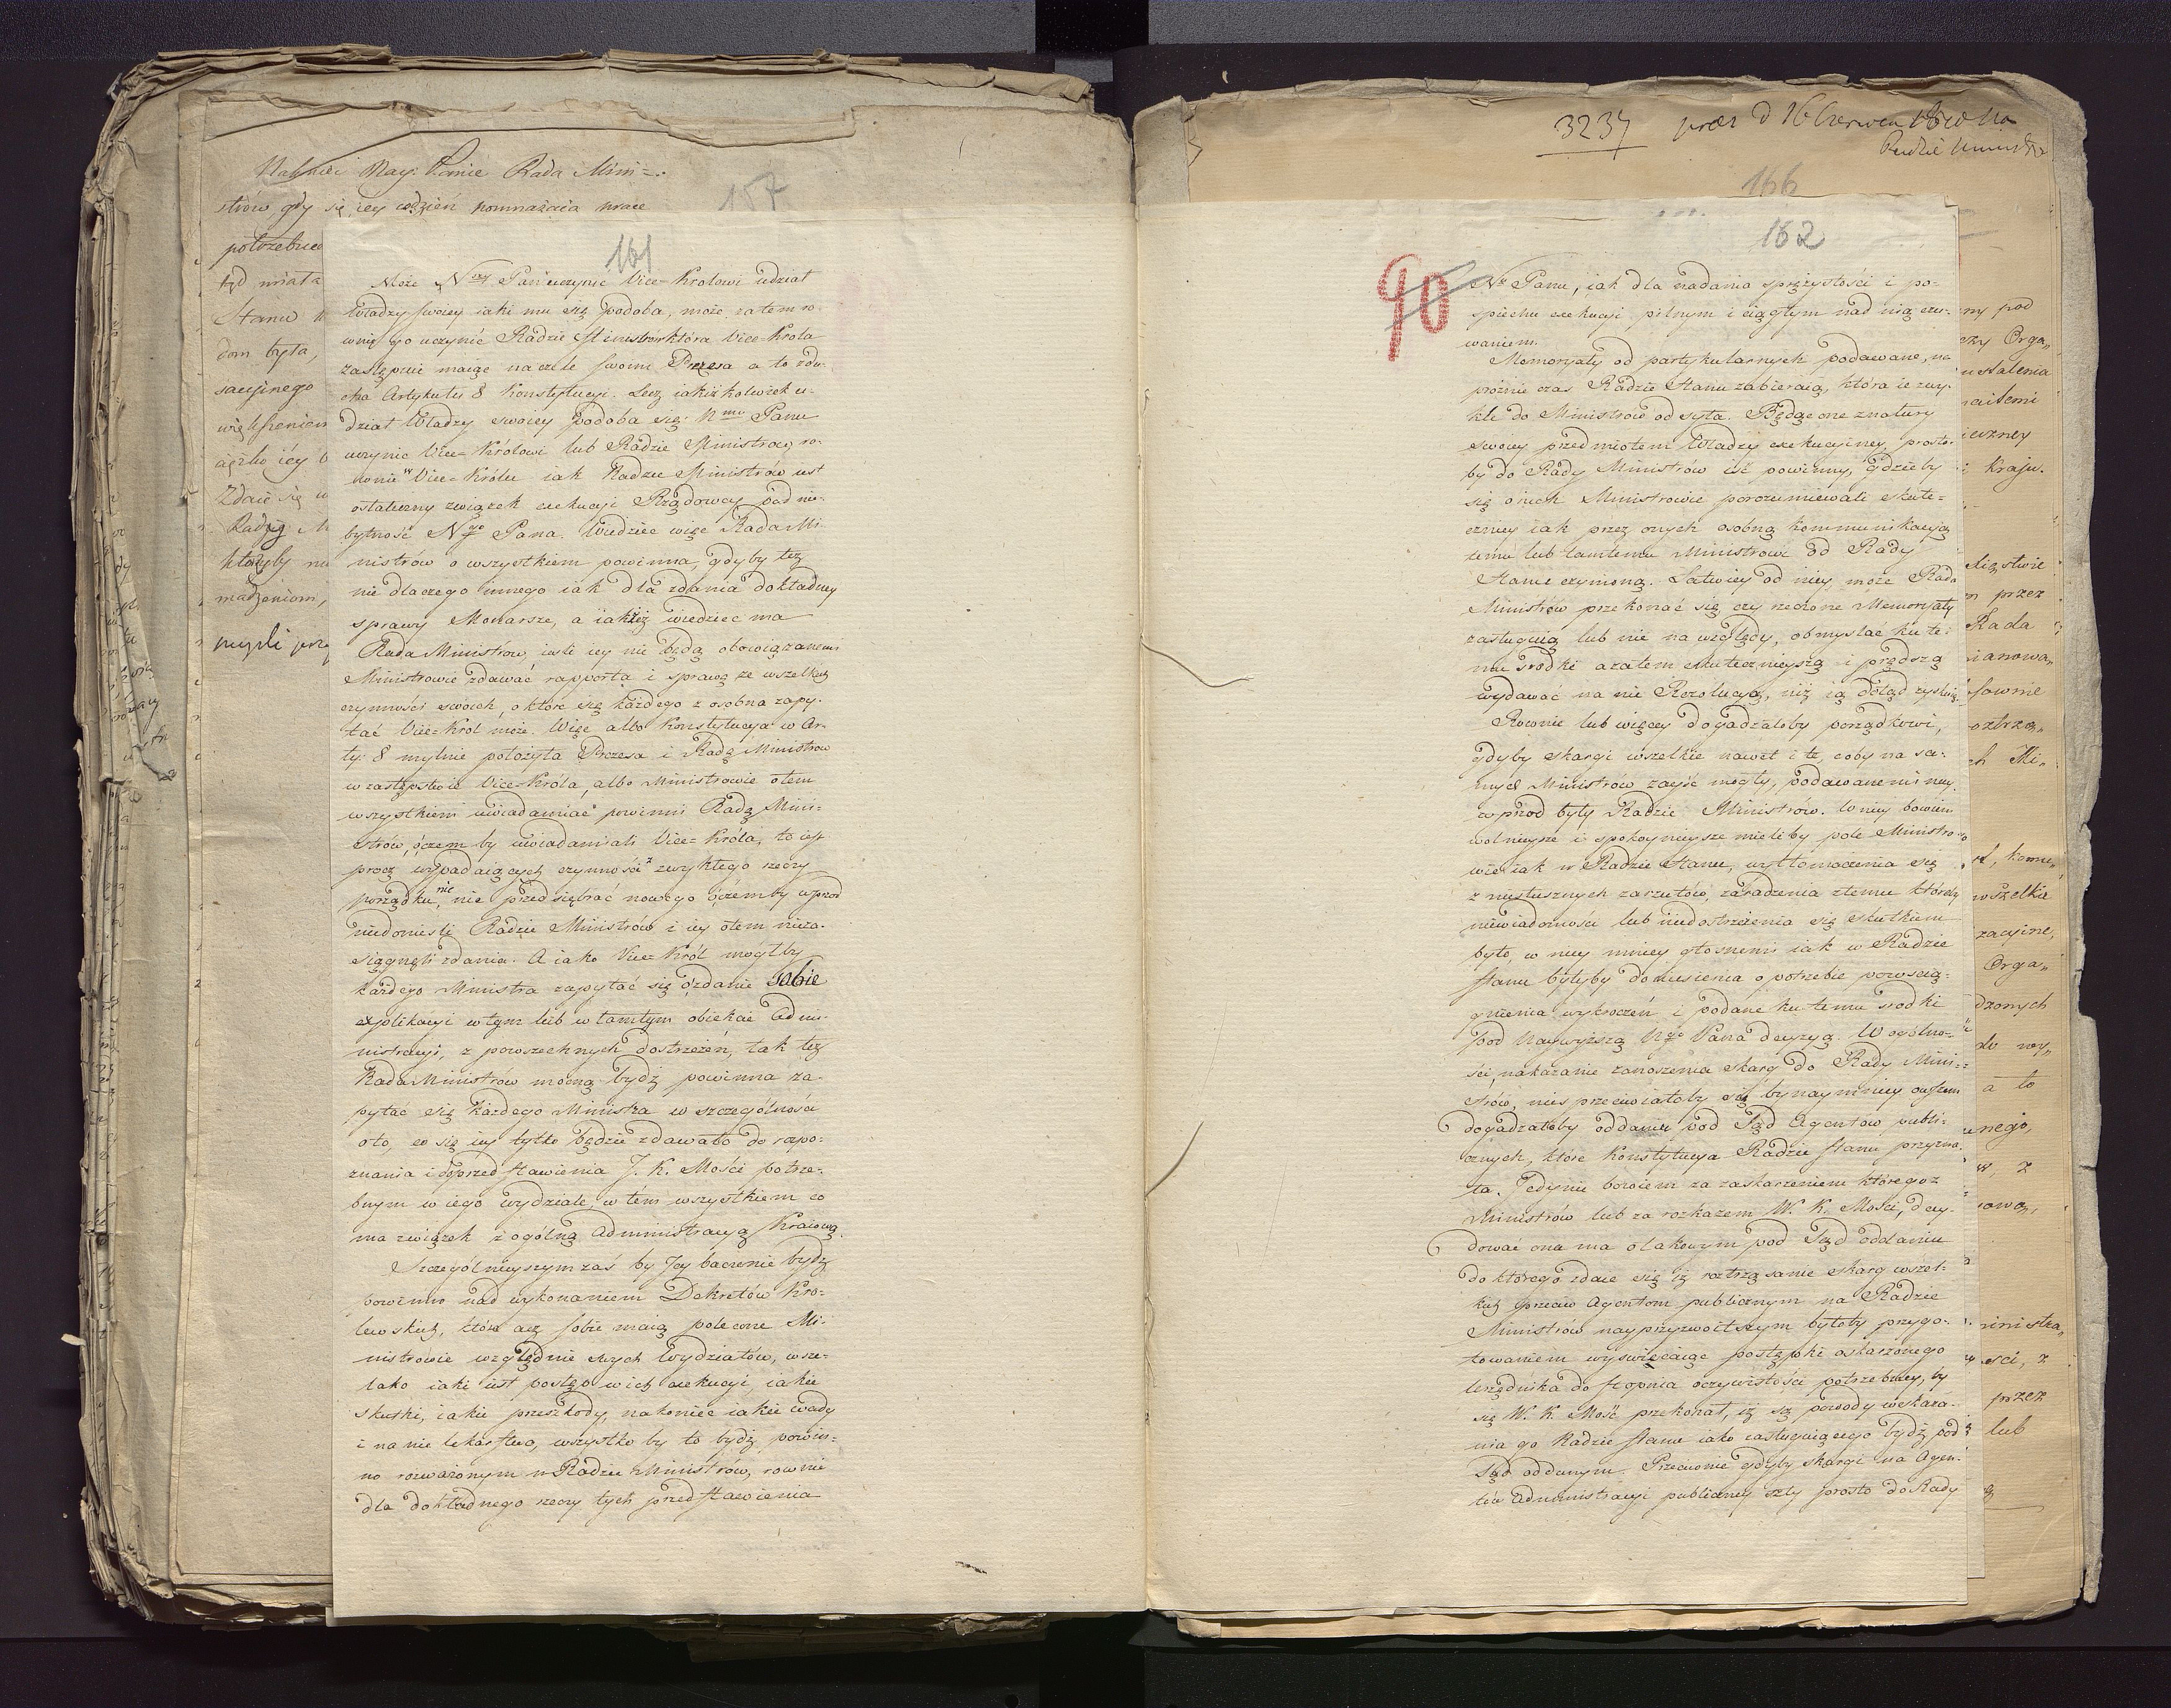 Nakoniec Nay: Panie Rada Mini-
strów, gdy się iey codzień pomnażaią prace
157
potrzebne
Stanu
dom była,
sacyjnego
Zdaie się
Radzy
któryby
madzeniom,
myśli prze
161
Może Nay: Pan uczynić Vice-Krolowi udział
Władzy swoiey iaki mu się podoba, może zatem ró-
wnie go uczynić Radzie Ministrów która Vice-Krola
zastępuie maiąc na czele swoim Prezesa a to z du-
cha Artykułu 8 Konstytucyi. Lecz iakiżkolwiek u-
dział Władzy swoiey podoba się Nmu Panu
uczynić Vice-Królowi lub Radzie Ministrów, ró-
wnie w Vice-Królu iak Radzie Ministrów iest
ostateczny związek exekucyi Rządowey pod nie-
bytność Ngo Pana. Wiedzieć więc Rada Mi-
nistrów o wszystkiem powinna, gdyby też
nie dlaczego innego iak dla zdania dokładney
sprawy Monarsze, a iakiż wiedzieć ma
Rada Ministrów, ieśli iey nie będą obowiązanemi
Ministrowie zdawać rapporta i sprawę ze wszelkich
czynności swoich, o które się każdego z osobna zapy-
tać Vice-Krol może. Więc albo Konstytucya w Ar-
ty: 8 mylnie położyła Prezesa i Radę Ministrów
w zastępstwie Vice-Króla, albo Ministrowie o tem
wszystkiem uwiadamiać powinni Radę Mini-
strów, o czem by uwiadamiali Vice-Króla, to iest
procz wypadaiących czynności z zwykłego rzeczy
porządku, nic nie przedsiębrać nowego o czemby wprzod
niedonieśli Radzie Ministrów i iey o tem nieza-
sięgnęli zdania. A iako Vice-Król mógłby
każdego Ministra zapytać się o zdanie sobie
explikacyi w tym lub w tamtym obiekcie Admi-
nistracyi, z powszechnych dostrzeżeń, tak też
Rada Ministrów mocną bydź powinna za-
pytać się każdego Ministra w szczególności
o to, co się iey tylko będzie zdawało do rozpo-
znania i do przedstawienia J. K. Mości potrze-
bnym w iego wydziale, w tém wszystkiem co
ma związek z ogólną Administracyą Kraiową.
Szczególnieyszym zaś by Jey baczenie bydź
powinno nad wykonaniem Dekretów Kro-
lewskich, które acz sobie maią polecone Mi-
nistrowie względnie swych Wydziałów, wsze-
lako iaki iest postęp w ich exekucyi, iakie
skutki, iakie przeszkody, nakoniec iakie wady
i na nie lekarstwo, wszystko by to bydź powin-
no rozważonym w Radzie Ministrów, rownie
dla dokładnego rzeczy tych przedstawienia
3237 prez d 16 Czerwca 1810 Na
Radzie
166
162
90
No Panu, iak dla nadania sprężystości i po-
spiechu exekucyi pilnym i ciągłym nad nią czu-
waniem.
Memoryały od partykularnych podawane, na
próżnie czas Radzie Stanu zabieraią, która ie zwy-
kle do Ministrów odsyła. Będąc one z natury
swoiey przedmiotem Władzy exekucyiney, prosto
by do Rady Ministrów iść powinny, gdzie by
się o nich Ministrowie porozumiewali skute-
czniey iak przez onych osobną kommunikacyą
temu lub tamtemu Ministrowi od Rady
Stanu czynioną. Łatwiey od niey, może Rada
Ministrów przekonać się czy rzeczone Memoryały
zasługuią lub nie na względy, obmyślać ku te-
mu srodki a zatem skutecznieyszą i prędszą
wydawać na nie Rezolucyą, niż ią dotąd zyskuią.
Rownie lub więcey dogadzałoby porządkowi,
gdyby skargi wszelkie nawet i te, coby na sa-
mych Ministrów zayść mogły, podawanemi nay-
wprzod były Radzie Ministrów. W niey bowiem
wolnieysze i spokoynieysze mieliby pole Ministro-
wie iak w Radzie Stanu, wytłomaczenia się
z niesłusznych zarzutów, zaradzenia złemu któreby
niewiadomości lub niedostrzeżenia się skutkiem
było, w niey mniey głosnemi iak w Radzie
Stanu byłyby doniesienia o potrzebie powscią-
gnienia wykroczeń i podane ku temu srodki
pod Naywyższą Ngo Pana decyzyą. W ogólno-
ści, nakazanie zanoszenia skarg do Rady Mini-
strów, nie sprzeciwiałoby się bynaymniey owszem
dogadzałoby oddaniu pod Sąd Agentów publi-
cznych, które Konstytucya Radzie Stanu przyzna-
ła. Jedynie bowiem za zaskarżeniem któregoz
Ministrów lub za rozkazem W. K. Mości, decy-
dować ona ma o takowym pod Sąd oddaniu
do którego zdaie się iż roztrząsanie skarg wszel-
kich przeciw Agentom publicznym na Radzie
Ministrów nayprzyzwoitszym byłoby przygo-
towaniem wyświecaiąc postępki oskarżonego
Urzędnika do stopnia oczywistości potrzebney, by
się W. K. Mość przekonał, iż są powody wskaza-
nia go Radzie Stanu iako zasługuiącego bydź pod
Sąd oddanym. Przeciwnie gdyby skargi na Agen-
tów Administracyi publiczney szły prosto do Rady
pod
Orga„
ustalenia
Kraju.
przez
Rada
Mi„
wszelkie
zacyine,
Orga„
dzonych
a to
przez
lub